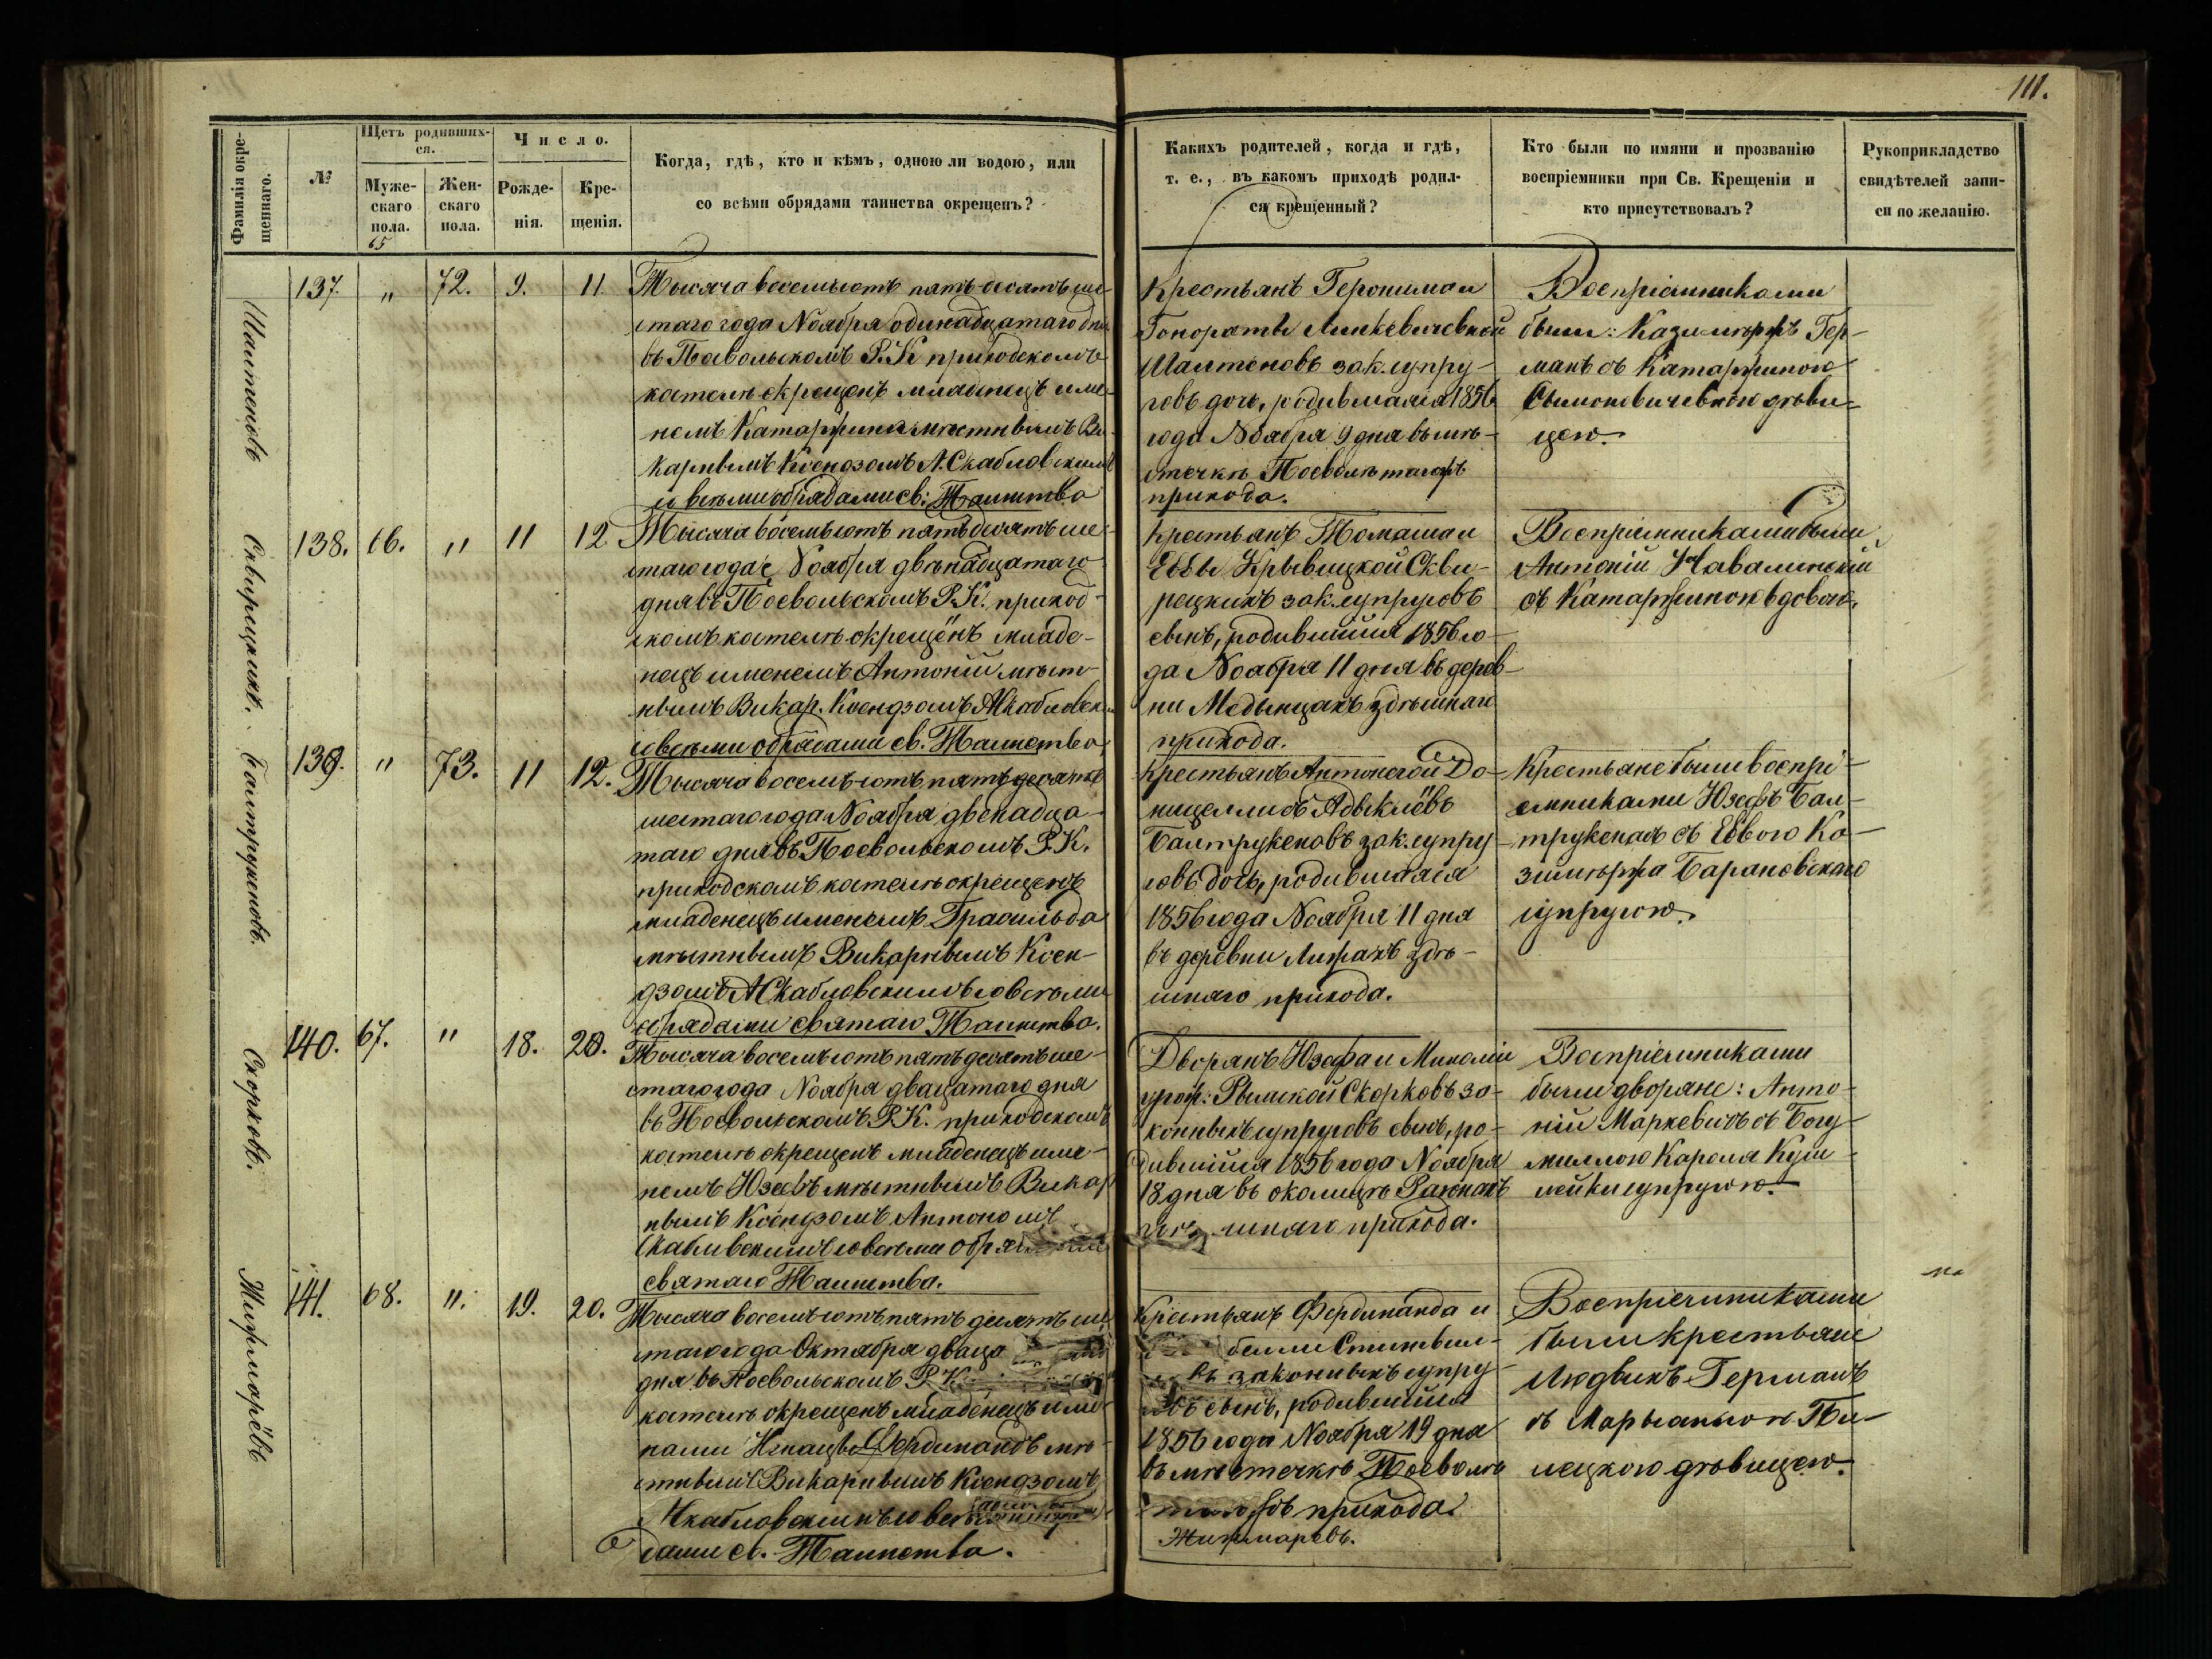 111.
Фамилія окре-
щеннаго.
№
Щетъ родивших-
ся.
Муже-
скаго
пола.
65
Жен-
скаго
пола.
Число.
Рожде-
нія.
Кре-
щенія.
Когда, гдѣ, кто и кѣмъ, одною ли водою, или
со всѣми обрядами таинства окрещенъ?
Какихъ родителей, когда и гдѣ,
т. е., въ какомъ приходѣ родил-
ся крещенный?
Кто были по имяни и прозванію
воспріемники при Св. Крещеніи и
кто присутствовалъ?
Рукоприкладство
свидѣтелей запи-
си по желанію.
Шалтеновъ
137. " 72. 9. 11
Тысяча восемьсотъ пятьдесятъ ше-
стаго года Ноября одинадцатаго дня
въ Поевольскомъ Р.К. приходскомъ
костелѣ окрещенъ младенецъ име-
немъ Катаржина мѣстнымъ Ви-
карнымъ Ксендзомъ А. Скабловскимъ
со всѣми обрядами св: Таинства
Крестьянъ Геронима и
Гонораты Линкевичевной
Шалтеновъ зак. супру-
говъ дочь, родившаяся 1856
года Ноября 9 дня въ мѣ-
стечкѣ Поеволѣ тогожъ
прихода.
Воспріемниками
были: Казимѣржъ Гер-
манъ съ Катаржиною
Сымоновичевною дѣви-
цею.
Сквирецкихъ.
138. 66. " 11 12
Тысяча восемьсотъ пятьдесятъ ше-
стаго года Ноября двѣнадцатаго
дня въ Поевольскомъ Р.К. приход-
скомъ костелѣ окрещенъ младе-
нецъ именемъ Антоній мѣст-
нымъ Викар. Ксендзомъ А Скабловски
со всѣми обрядами св. Таинства
Крестьянъ Томаша и
Еввы Крывицкой Скви-
рецкихъ зак. супруговъ
сынъ, родившійся 1856 го-
да Ноября 11 дня въ дерев-
ни Медынцахъ здѣшняго
прихода.
Воспріемниками были
Антоній Навалинскій
съ Катаржиною вдовою.
Балтрукеновъ.
139. " 73. 11 12.
Тысяча восемьсотъ пятьдесятъ
шестаго года Ноября двенадца-
таго дня въ Поевольскомъ Р.К.
приходскомъ костелѣ окрещенъ
младенецъ именемъ Грасильда
мѣстнымъ Викарнымъ Ксен-
дзомъ А Скабловскимъ со всѣми
обрядами святаго Таинства.
Крестьянъ
Балтрукеновъ зак. супру-
говъ дочь, родившаяся
1856 года Ноября 11 дня
въ деревни здѣ-
шняго прихода.
Крестьяне были воспрі-
емниками Юзефъ Бал-
трукенасъ съ Еввою Ка-
зимѣржа Барановскаго
супругою.
Скорковъ.
140. 67. " 18. 20.
Тысяча восемьсотъ пятьдесятъ ше-
стаго года Ноября двацатаго дня
въ Поевольскомъ Р.К. приходскомъ
костелѣ окрещенъ младенецъ име-
немъ Юзефъ мѣстнымъ Викар-
нымъ Ксендзомъ Антономъ
Скабловскимъ со всѣми обря
святаго Таинства.
Дворянъ Юзефа и Михалии
урож: Рымской Скорковъ за-
конныхъ супруговъ сынъ, ро-
дившійся 1856 года Ноября
18 дня въ околицѣ
шняго прихода.
Воспріемниками
были дворяне: Анто-
ній Маркевичъ съ Богу-
миллою Кароля Куш-
лейки супругою.
Жижмарёвъ
141. 68. ". 19. 20.
Тысяча восемьсотъ пятьдесятъ ше-
стаго года Октября дваца
дня въ Поевольскомъ Р.К.
костелѣ окрещенъ младенецъ име-
нами Игнацы Фердинандъ мѣ-
стнымъ Викарнымъ Ксендзомъ
А Скабловскимъ со всѣми
дами св. Таинства.
Крестьянъ Фердинанда и
законныхъ супру-
говъ сынъ, родившійся
1856 года Ноября 19 дня
въ мѣстечкѣ Поеволѣ
тогожъ прихода.
Жижмаревъ.
Воспріемниками
были крестьяне
Людвикъ Германъ
съ Марьянною Би-
лецкою дѣвицею.